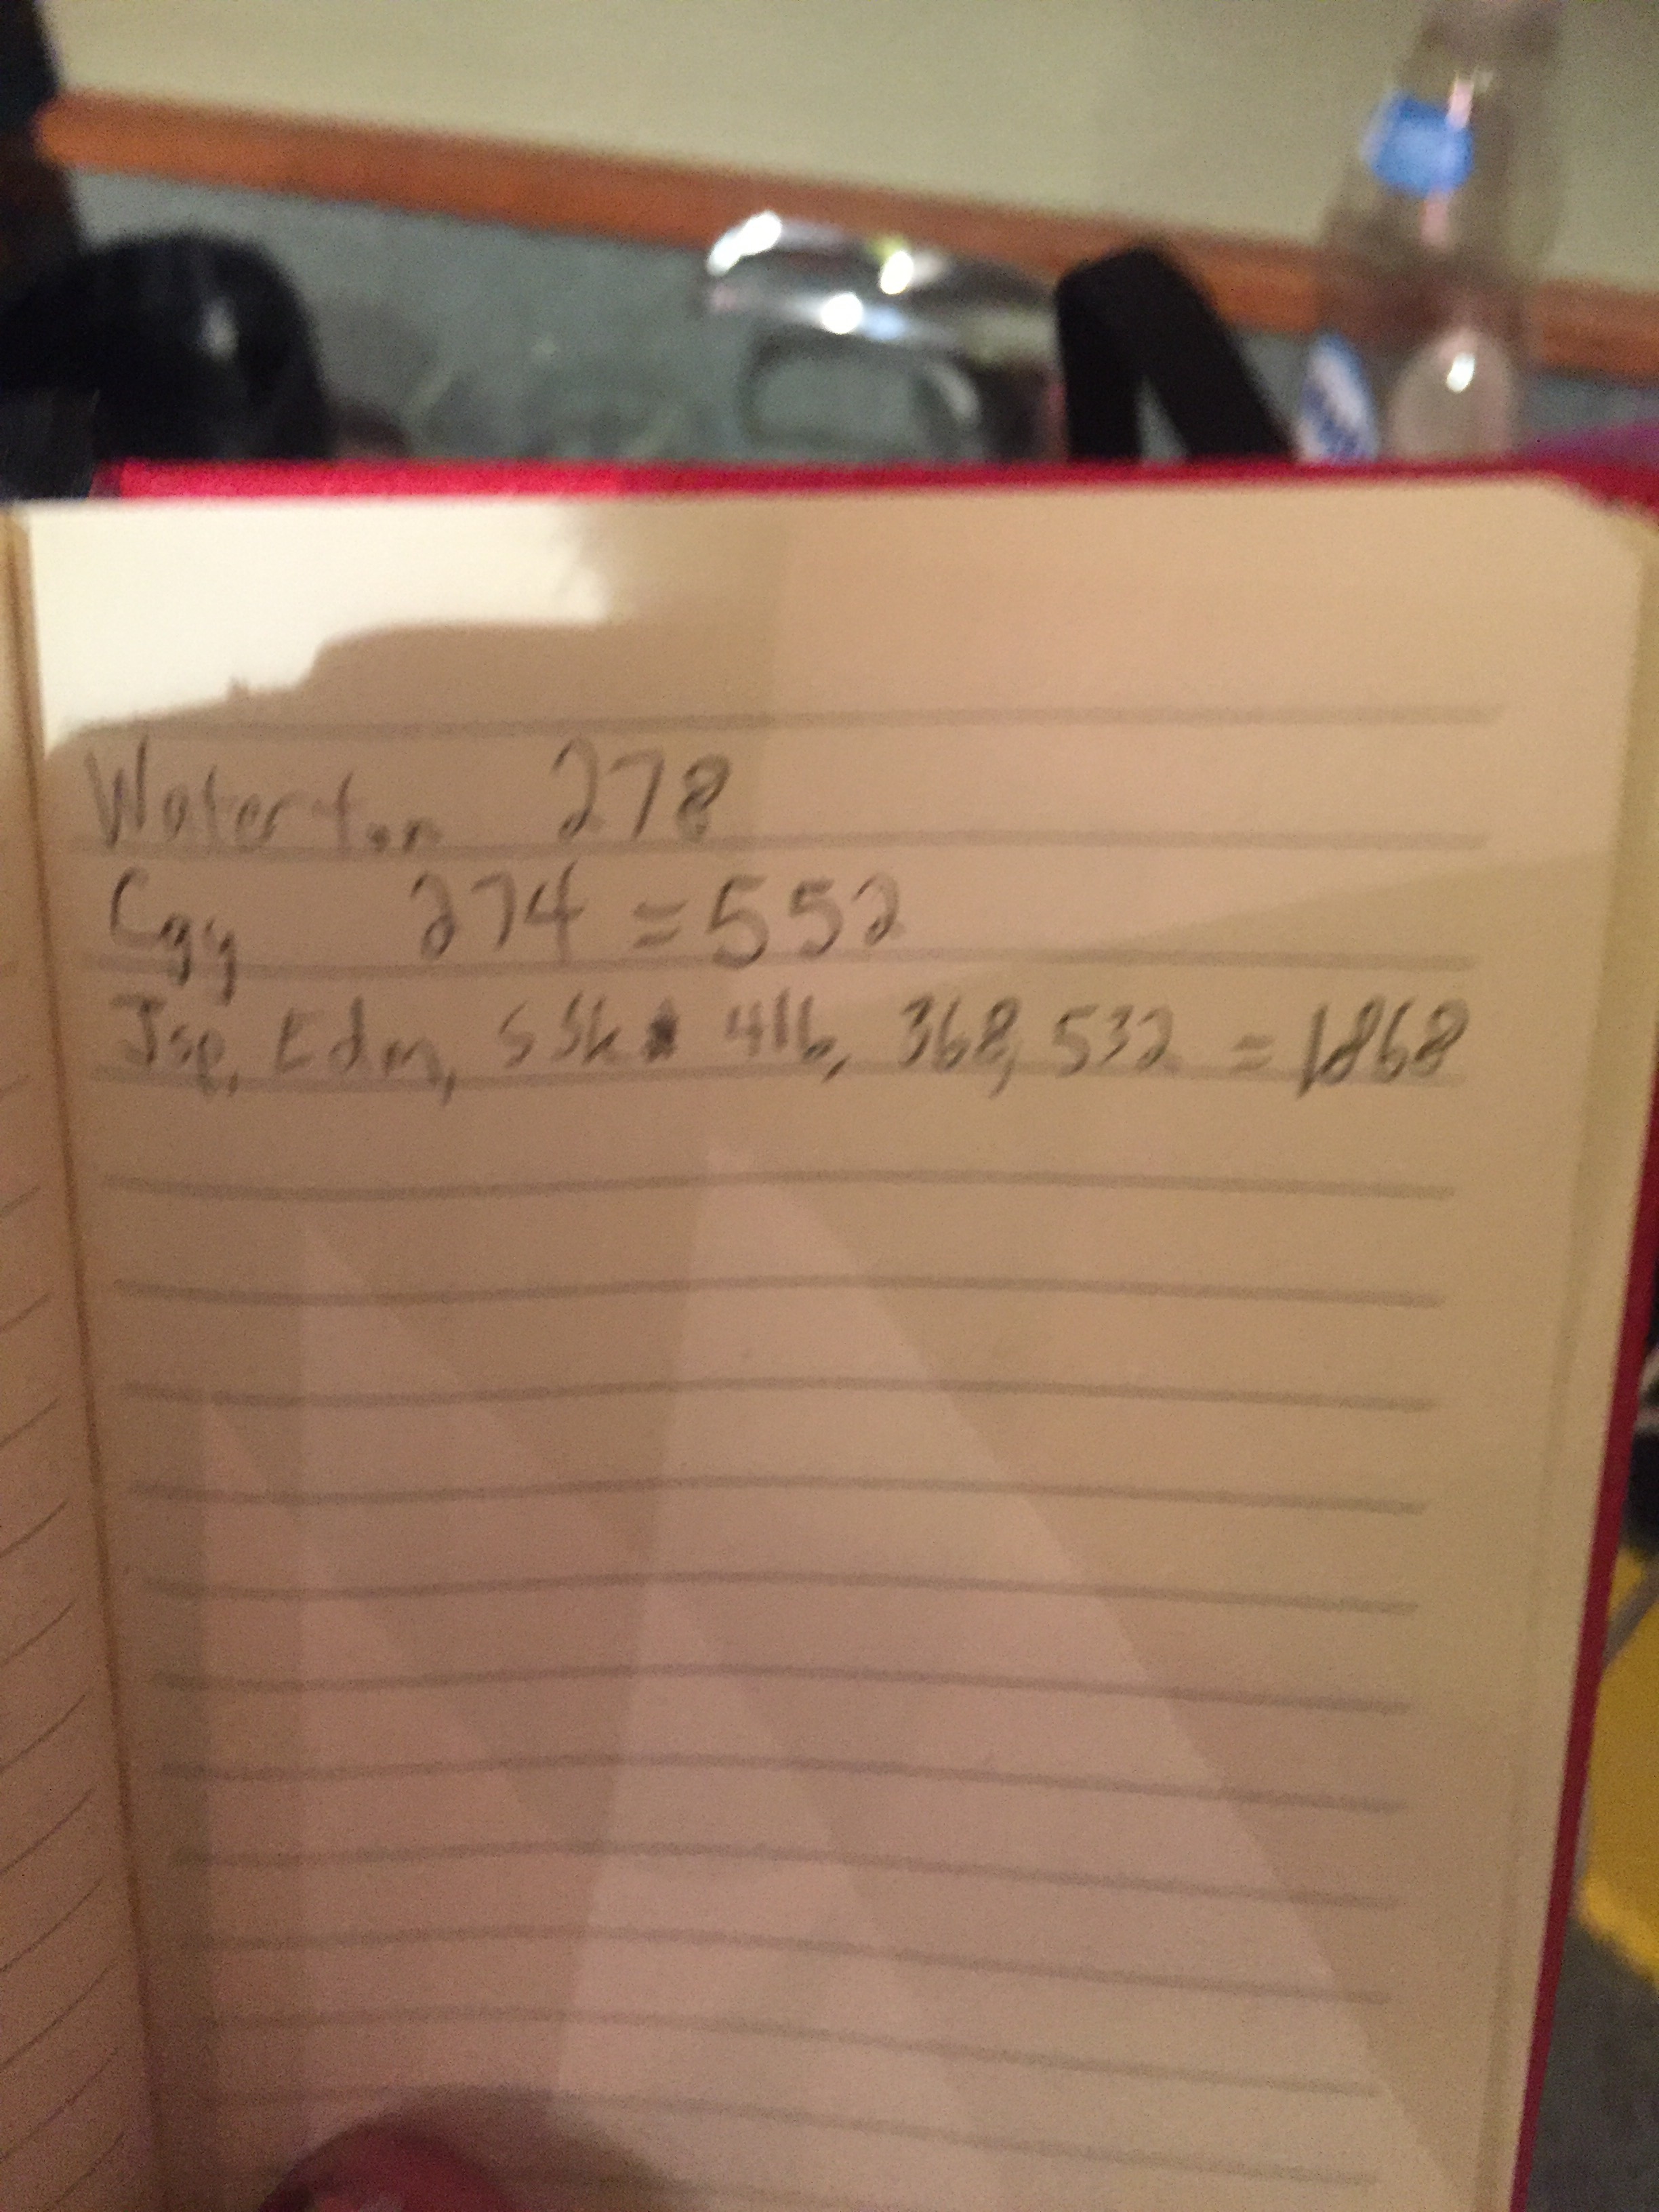 Waterton 278
Cgy 274 = 552
Jsp, Edm, Ssk 416, 368, 532 = 1868